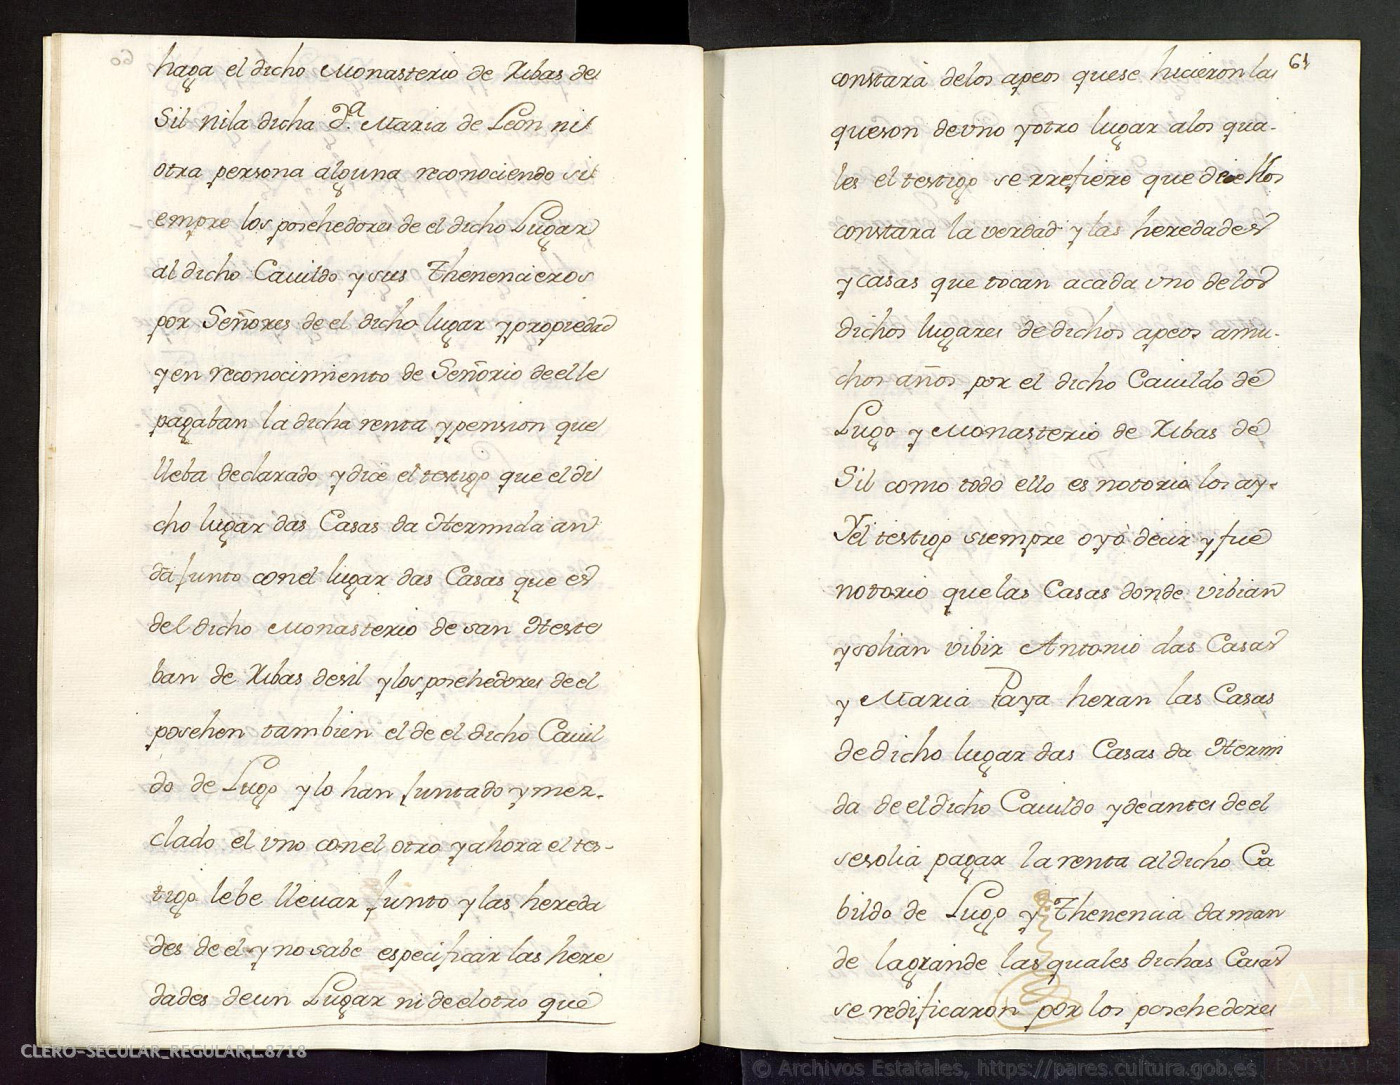 haga el dicho Monasterio de Ribas de
Sil nila dicha D.ª Maria de Leon ni
otra persona alguna reconociendo si
empre los posehedores de el dicho Lugar
al dicho Cauildo y sus Thenencieros
por Señores de el dicho lugar y propiedad
y en reconocimiento de Señorio de elle
pagaban la dicha renta y pension que
lleba declarado y dice el testigo que el di
cho lugar das Casas da Hermida an
da junto con el lugar das Casas que es
del dicho Monasterio de san Heste
ban de Ribas desil y los posehedores de el
posehen tambien el de el dicho Cauil
do de Lugo y lo han juntado y mez-
clado el vno con el otro y ahora el tes-
tigo lebe lleuar junto y las hereda
des de el y no sabe especificar las here
dades de un Lugar ni de el otro que
61
constará delos apeos quese hicieron las
queson de vno y otro lugar a los qua-
les el testigo se rrefiere que de ellos
constara la verdad y las heredades
y casas que tocan acada vno delos
dichos lugares de dichos apeos amu-
chos años por el dicho Cauildo de
Lugo y Monasterio de Ribas de
Sil como todo ello es notorio los ay-
Y el testigo siempre oyó decir y fue
notorio que las Casas donde vibian
y solian vibir Antonio das Casas
y Maria Paya heran las Casas
de dicho lugar das Casas da Hermi
da de el dicho Cauildo y de antes de el
sesolia pagar la renta al dicho Ca
bildo de Lugo y Thenencia daman
de lagrande las quales dichas Casas
se redificaron por los posehedores
CLERO-SECULAR_REGULAR,L.8718
© Archivos Estatales, https://pares.cultura.gob.es